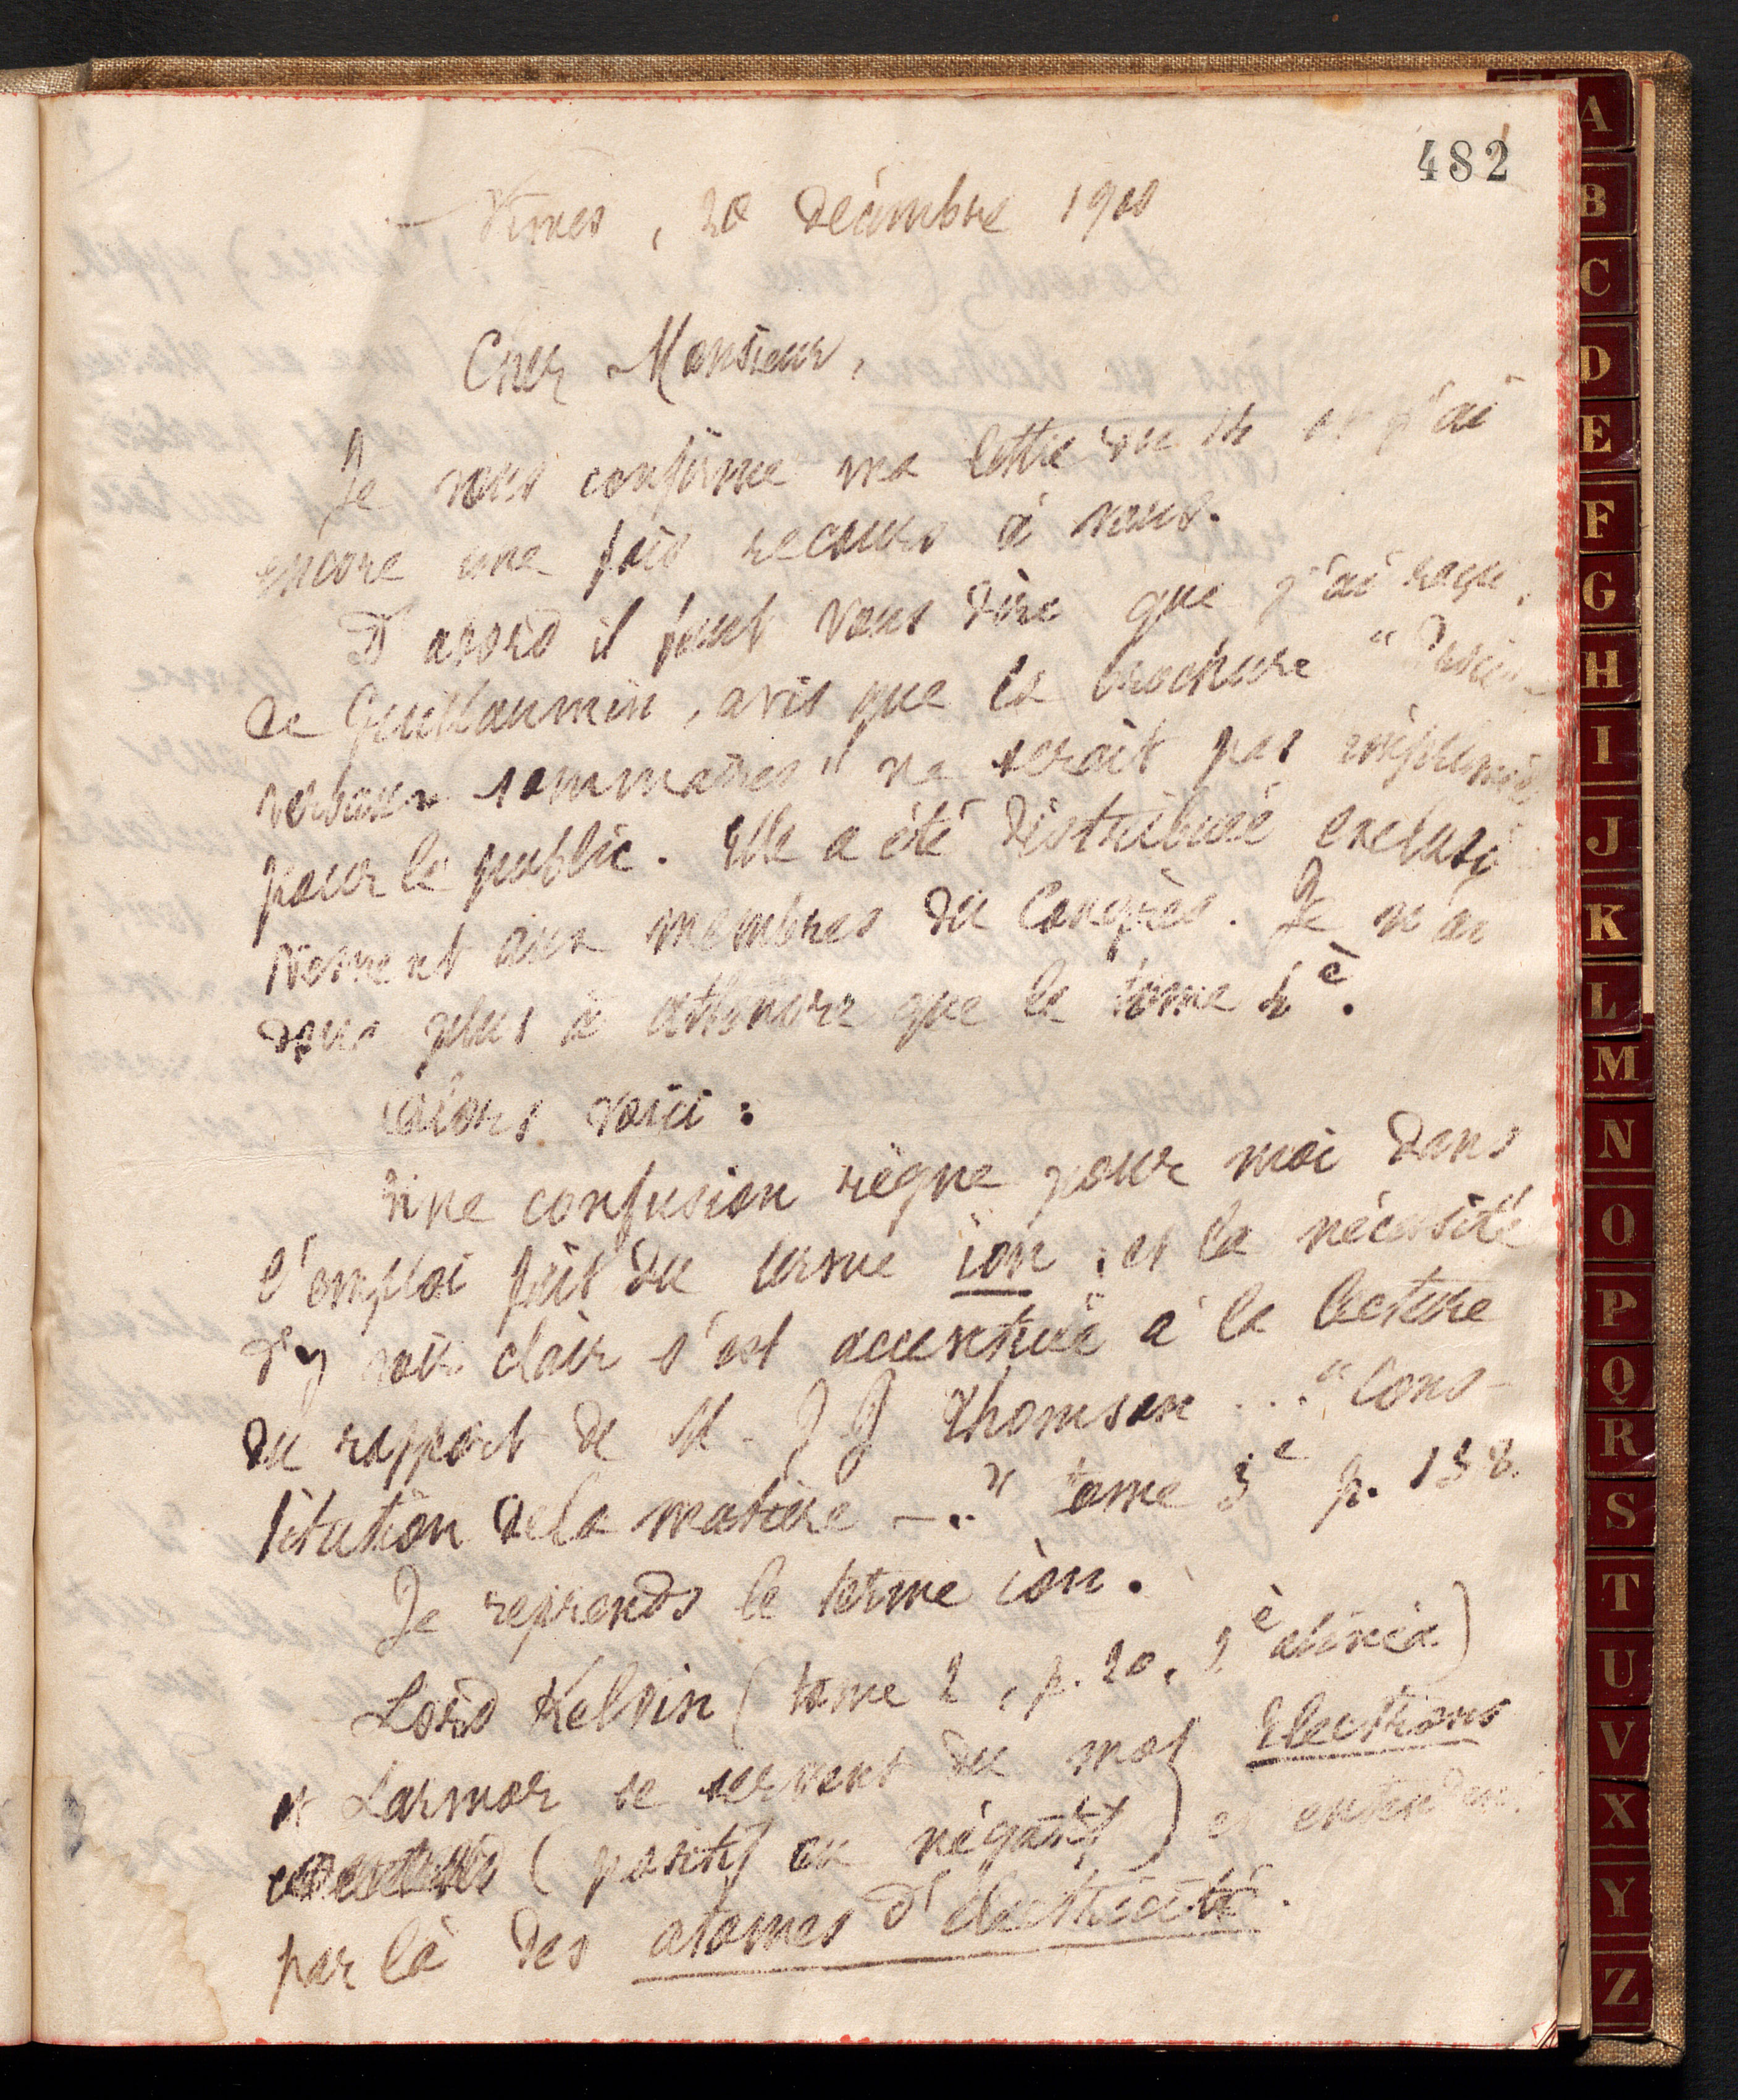 482
Nimes, 20 décembre 1900
Cher Monsieur,
Je vous confirme ma lettre du 14 et j'ai
encore une fois recours à vous.
D'abord il faut vous dire que j'ai reçu,
de Guillaumin, avis que la brochure "Procès-
verbaux sommaires" ne serait pas réimprimée
pour le public. Elle a été distribuée exclusi
vement aux membres du Congrès. Je n'ai
donc plus à attendre que le tome 4è.
Alors voici :
Une confusion règne pour moi dans
l'emploi fait du terme ion ; et la nécessité
d'y voir clair s'est accentuée à la lecture
du rapport de M. J J Thomson ... "Cons-
titution de la matière -.." tome 3è p. 138.
Je reprends le terme ion.
Lord Kelvin (tome 2, p. 20, 2è alinéa)
et Larmor se servent du mot Electrions
(positif ou négatif) et entendent
par là des atomes d'électricité.
A
B
C
D
E
F
G
H
I
J
K
L
M
N
O
P
Q
R
S
T
U
V
X
Y
Z